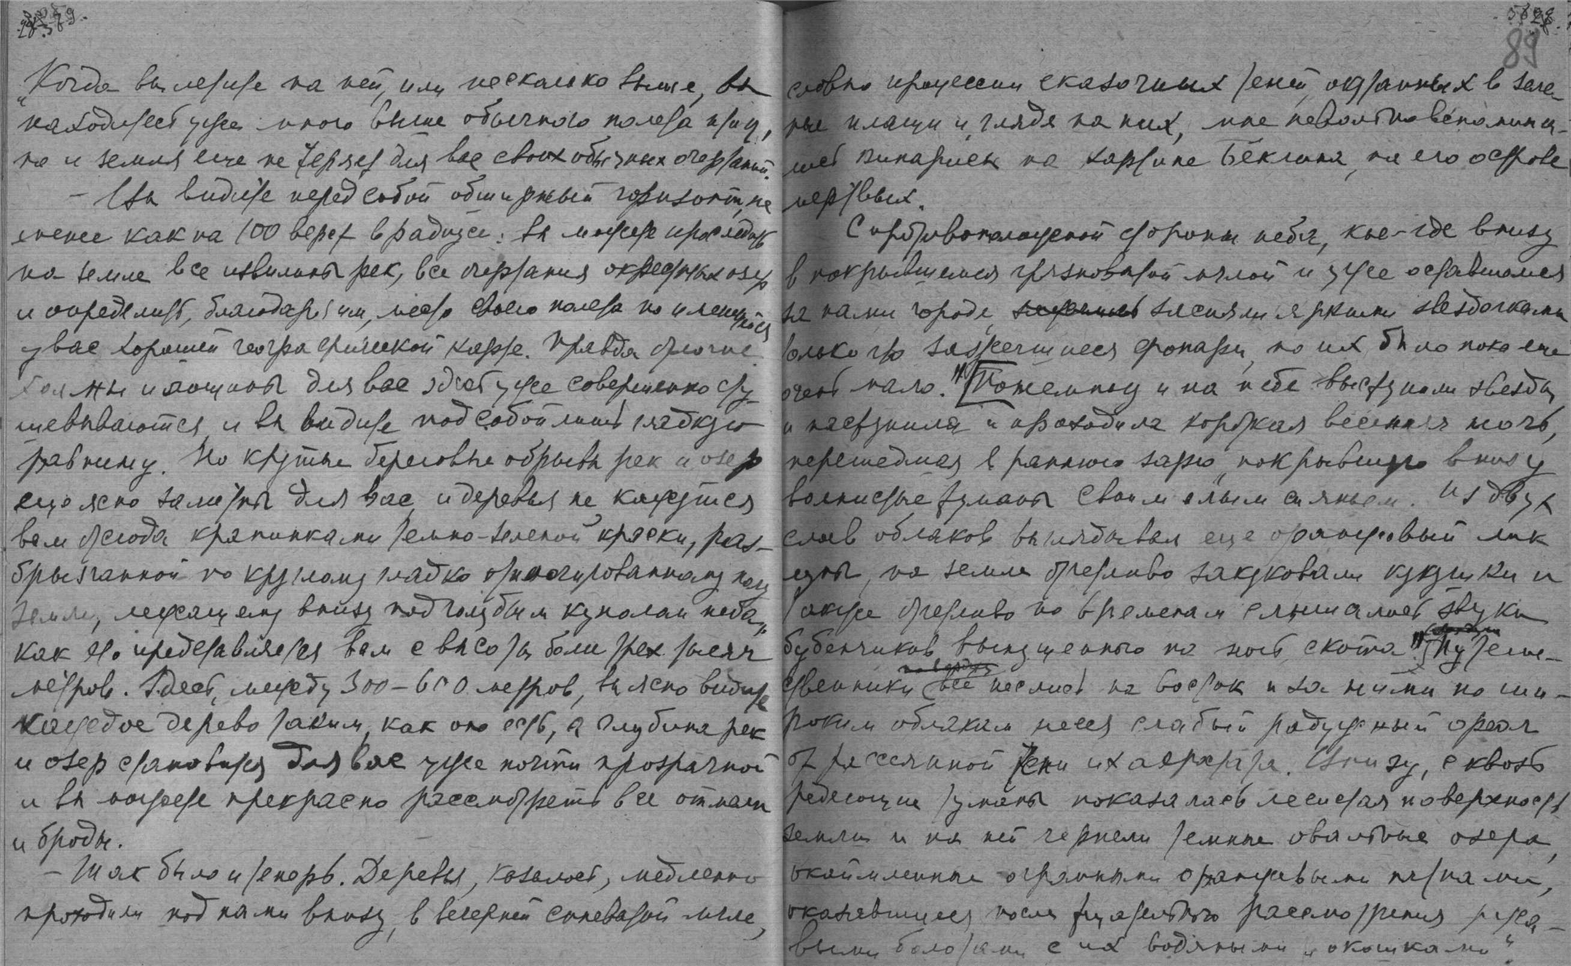 „Когда вы летите на ней, или несколько выше, вы
находитесь уже много выше обычного полета птиц,
но и земля еще не теряет для вас своих обычных очертаний.
— Вы видите перед собой обширный горизонт, не
менее как на 100 верст в радиусе: вы можете проследить
на земле все извилины рек, все очертания окрестных озер
и определить, благодаря им, место своего полета по имеющейся
у вас хорошей географической карте. Правда отлогие
холмы и лощины для вас здесь уже совершенно сту-
шевываются и вы видите под собой лишь гладкую
равнину. Но крутые береговые обрывы рек и озер
еще ясно заметны для вас и деревья не кажутся
вам отсюда крапинками темно-зеленой краски, раз-
брызганной по круглому гладко
земли, лежащему внизу под голубым куполом неба,
как это представляется вам с высоты более трех тысяч
метров. Здесь, между 300–600 метров, вы ясно видите
каждое дерево таким, как оно есть, а глубина рек
и озер становится для вас уже почти прозрачной
и вы можете прекрасно рассмотреть все отмели
и броды.
— Так было и теперь. Деревья, казалось, медленно
проходили под нами внизу, в вечерней синеватой мгле,
89
словно процессии сказочных теней, одетанных в зеле-
ные плащи и, глядя на них, мне невольно вспомина-
лись кипарисы на картине Бёклина, на его острове
мертвых.
С противоположной стороны неба, кое-где внизу
в покрывшемся грязноватой мглой и уже оставшемся
за нами городе, засияли яркими звездочками
только что зажегшиеся фонари, но их было пока еще
очень мало." Потемнело и на небе выступили звезды
и наступила и проходила короткая весенняя ночь,
перешедшая в раннюю зарю, покрывшую внизу
волнистые туманы своим алым сияньем. Из двух
слоев облаков выглядывал еще оранжевый лик
луны, на земле отчетливо закуковали кукушки и
также отчетливо по временам слышались звуки
бубенчиков выпущенного на ночь скота. "Путеше-
ственники все неслись на восток и за ними по ши-
роким облакам несся слабый радужный ореол
от рассеянной тени их аэростата. Внизу, сквозь
редеющие туманы показалась лесистая поверхность
земли и на ней чернели темные овальные озера,
окаймленные огромными оранжевыми пятнами,
оказавшиеся после тщательного рассмотрения
выми болотами с их водяными „окошками".